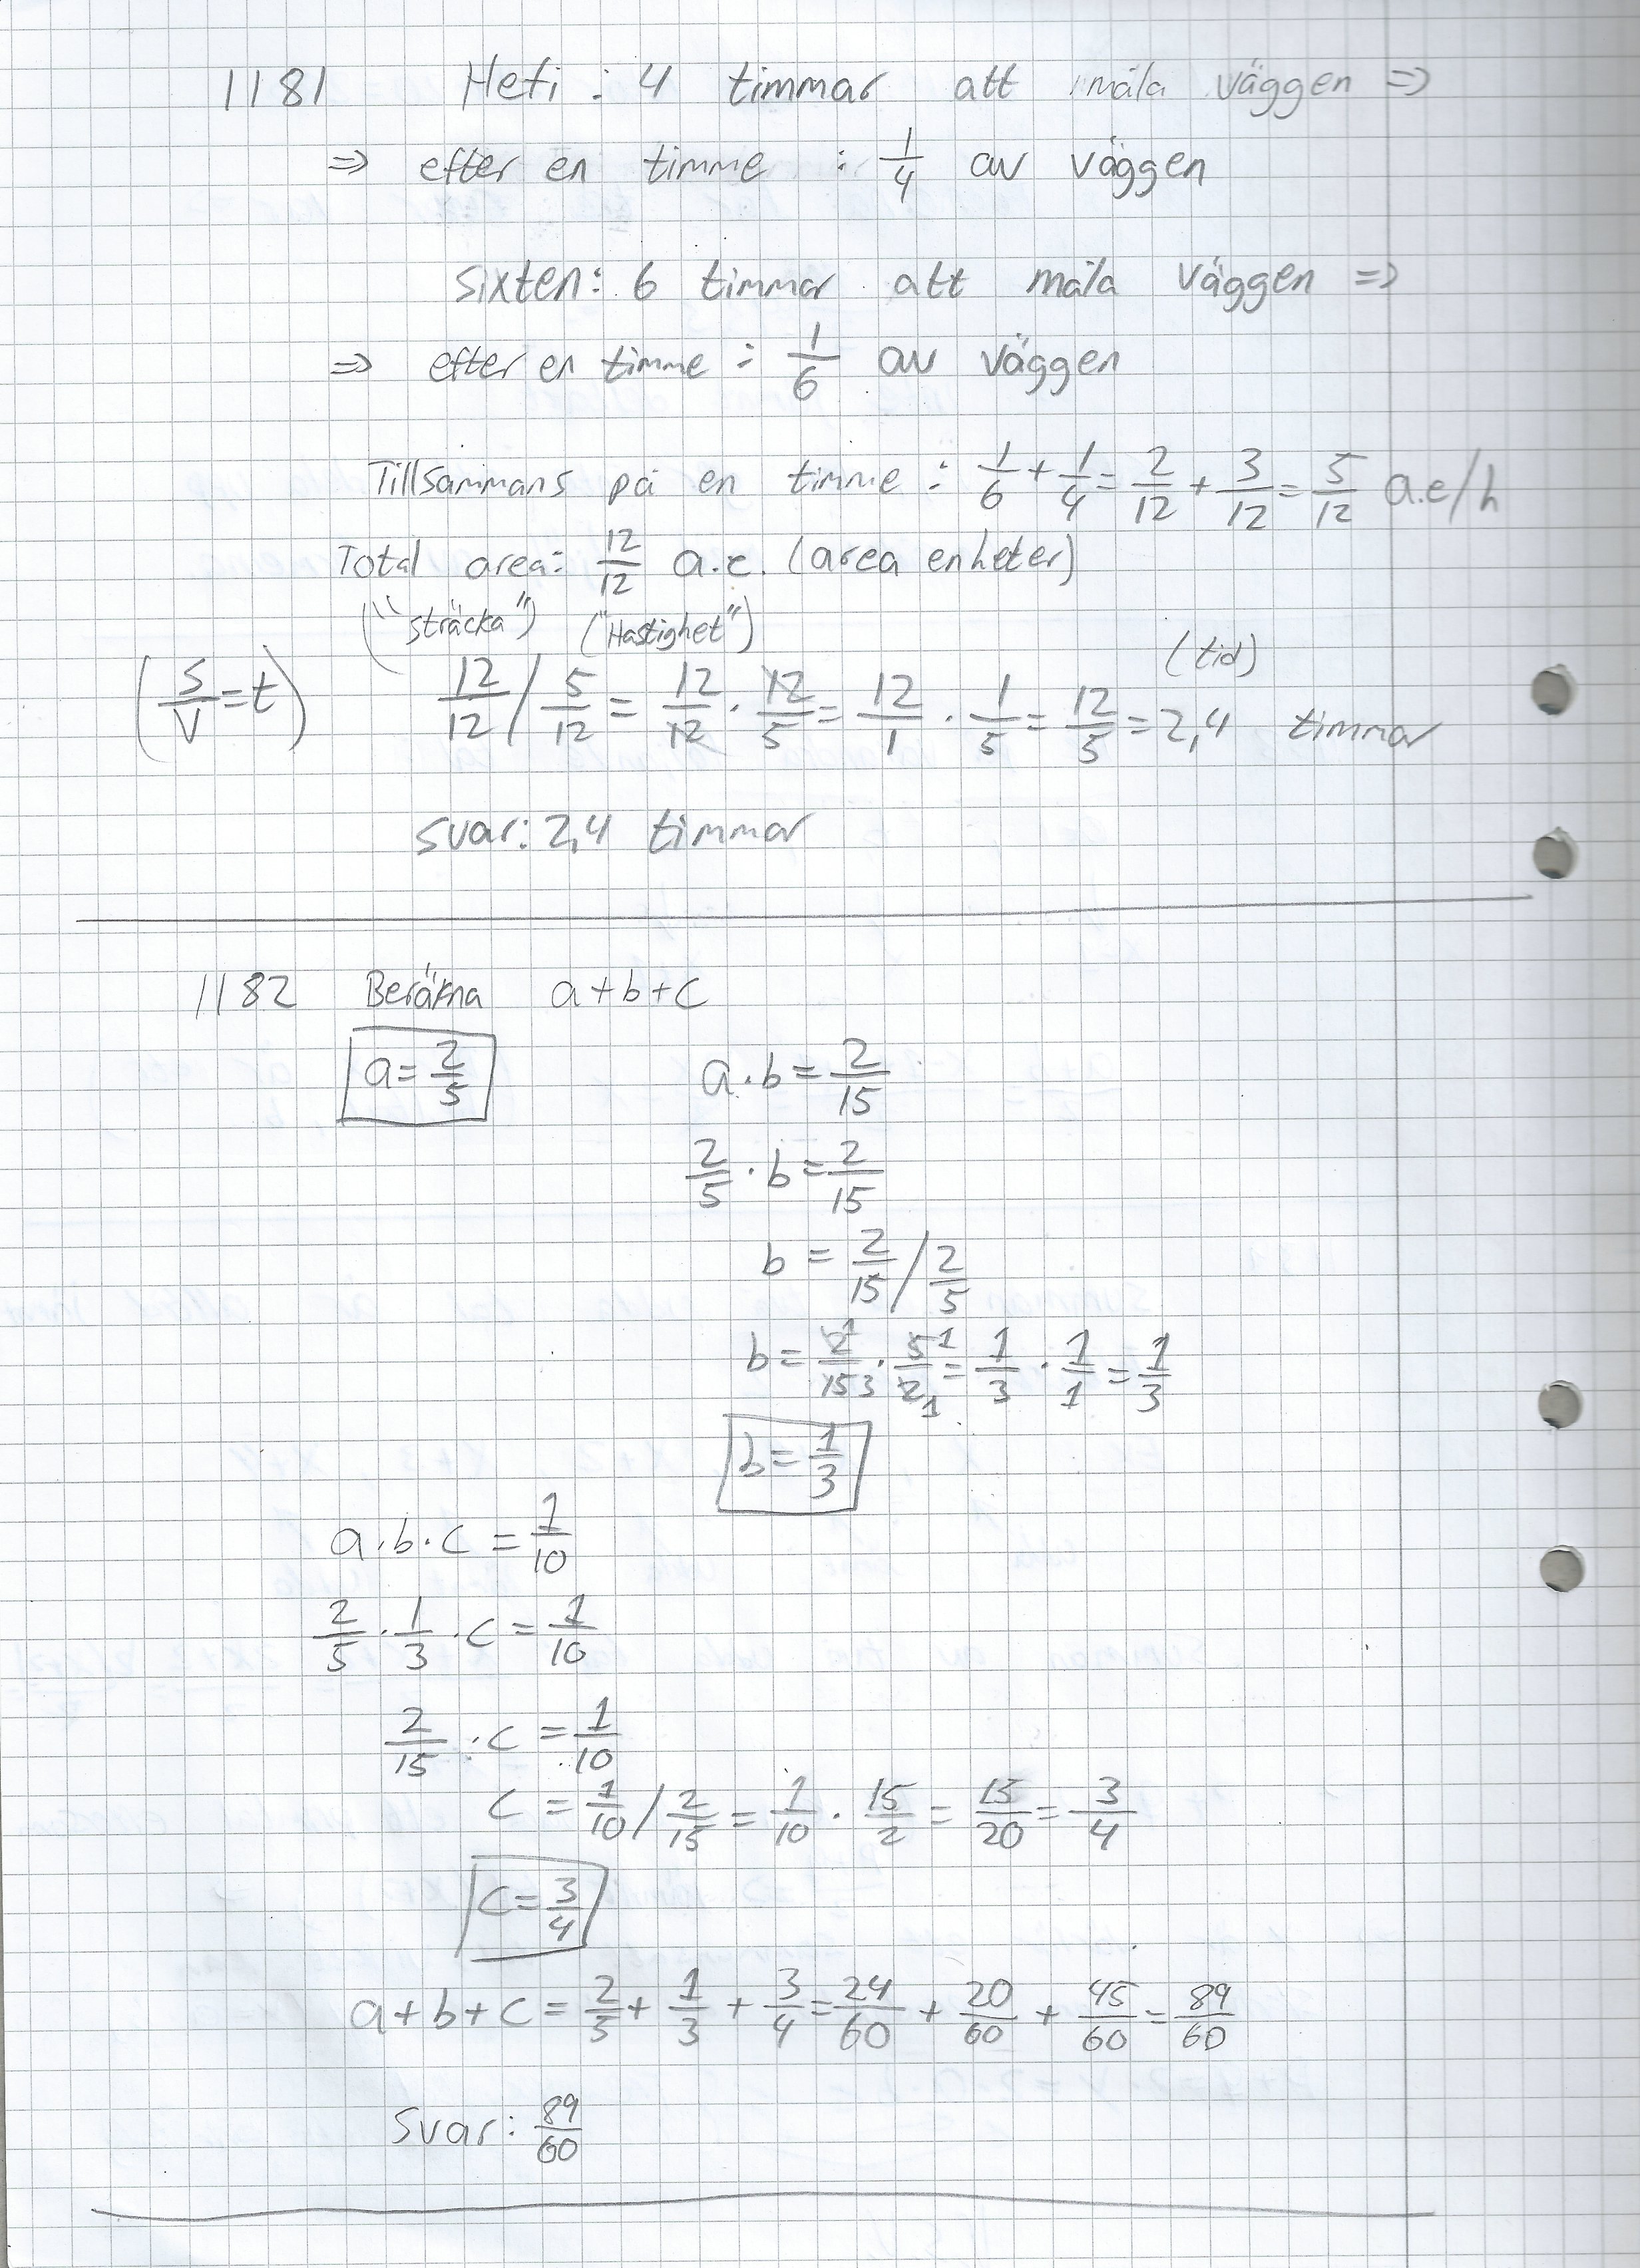 1181 Hefi: 4 timmar att måla väggen =>
=> efter en timme : 1/4 av väggen
sixten: 6 timmar att måla väggen =>
=> efter en timme : 1/6 av väggen
Tillsammans på en timme : 1/6 + 1/4 = 2/12 + 3/12 = 5/12 a.e/h
Total area: 12/12 a.e. (area enheter)
("sträcka") ("Hastighet")
(tid)
(s/v = t) 12/12 / 5/12 = 12/12 · 12/5 = 12/1 · 1/5 = 12/5 = 2,4 timmar
svar: 2,4 timmar
1182 Beräkna a+b+c
a = 2/5 a·b = 2/15
2/5 · b = 2/15
b = 2/15 / 2/5
b = 2 1/15 3 · 5 1/2 1 = 1/3 · 1/1 = 1/3
b = 1/3
a·b·c = 1/10
2/5 · 1/3 · c = 1/10
2/15 · c = 1/10
c = 1/10 / 2/15 = 1/10 · 15/2 = 15/20 = 3/4
c = 3/4
a+b+c = 2/5 + 1/3 + 3/4 = 24/60 + 20/60 + 45/60 = 89/60
svar: 89/60